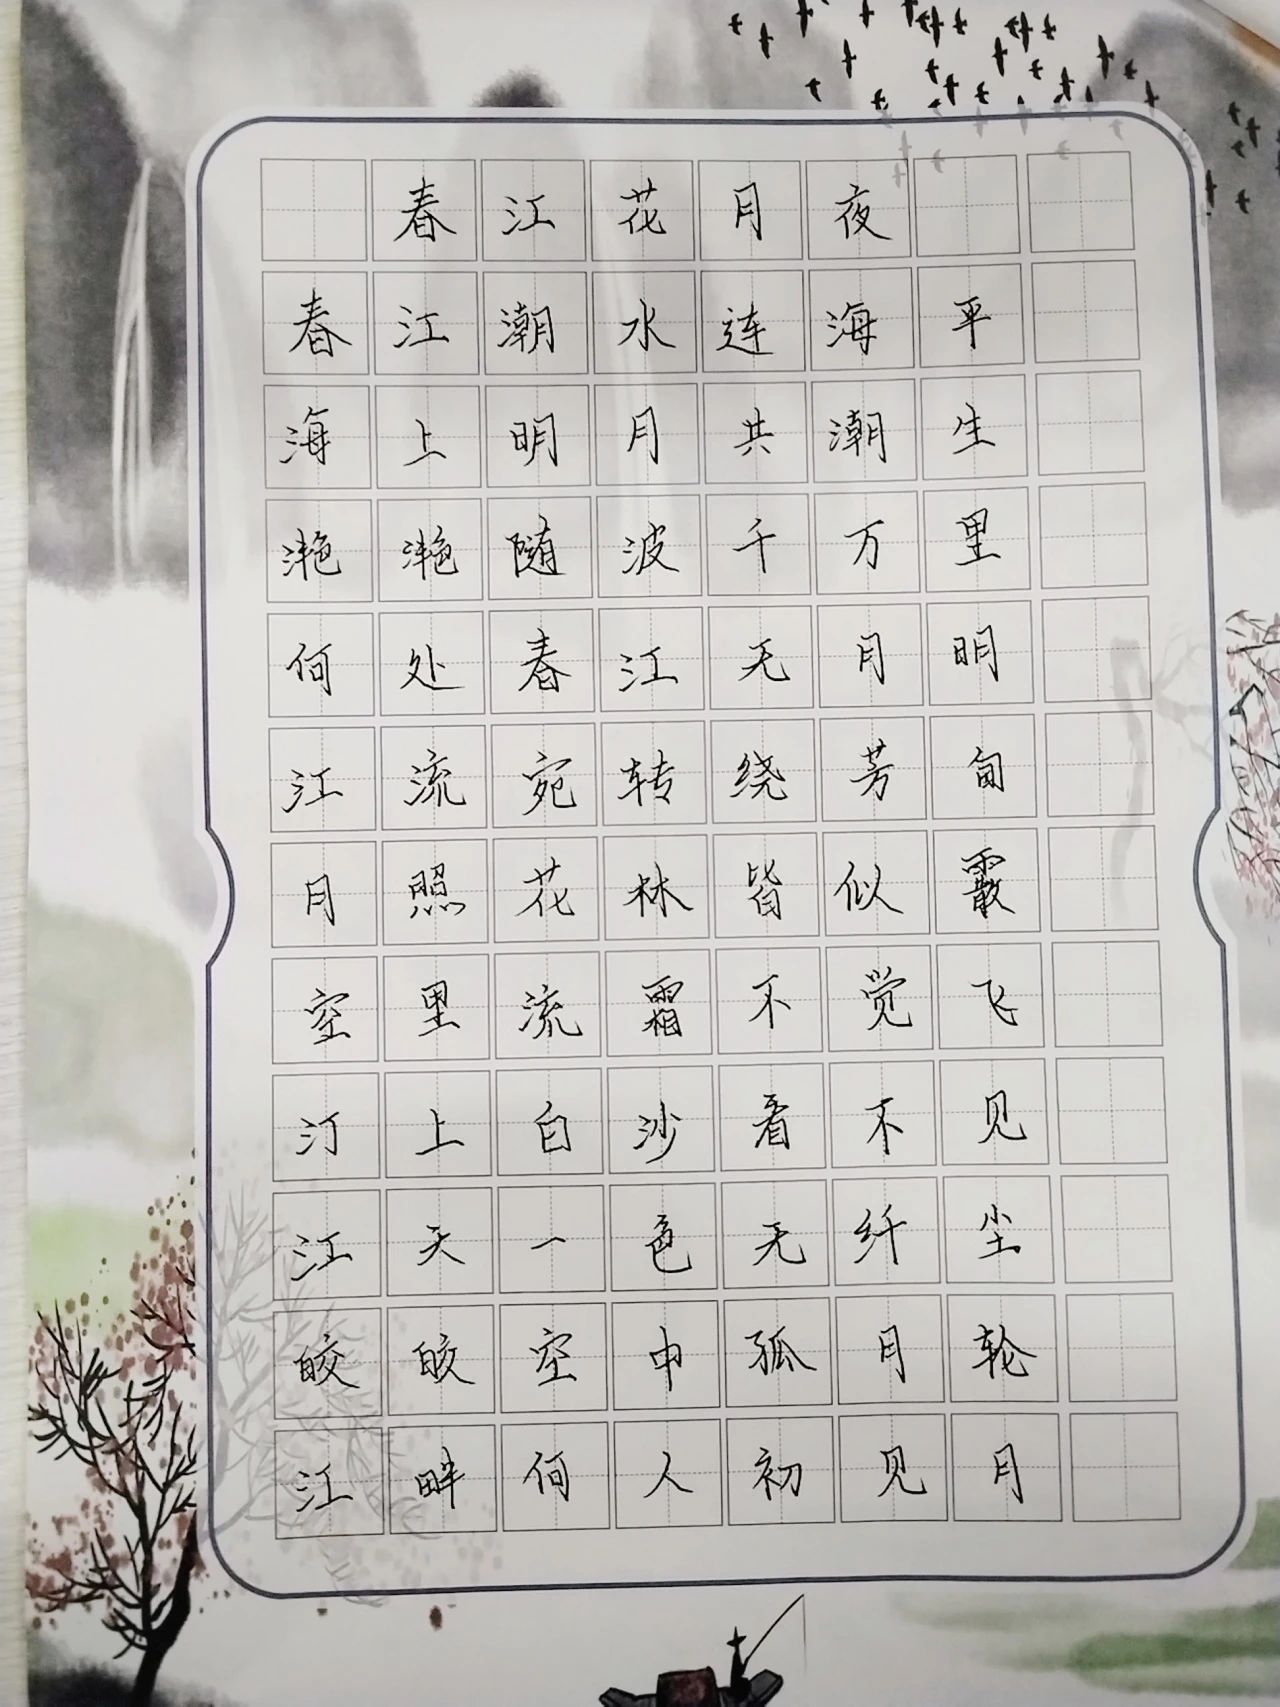 春江花月夜
春江潮水连海平
海上明月共潮生
滟滟随波千万里
何处春江无月明
江流宛转绕芳甸
月照花林皆似霰
空里流霜不觉飞
汀上白沙看不见
江天一色无纤尘
皎皎空中孤月轮
江畔何人初见月